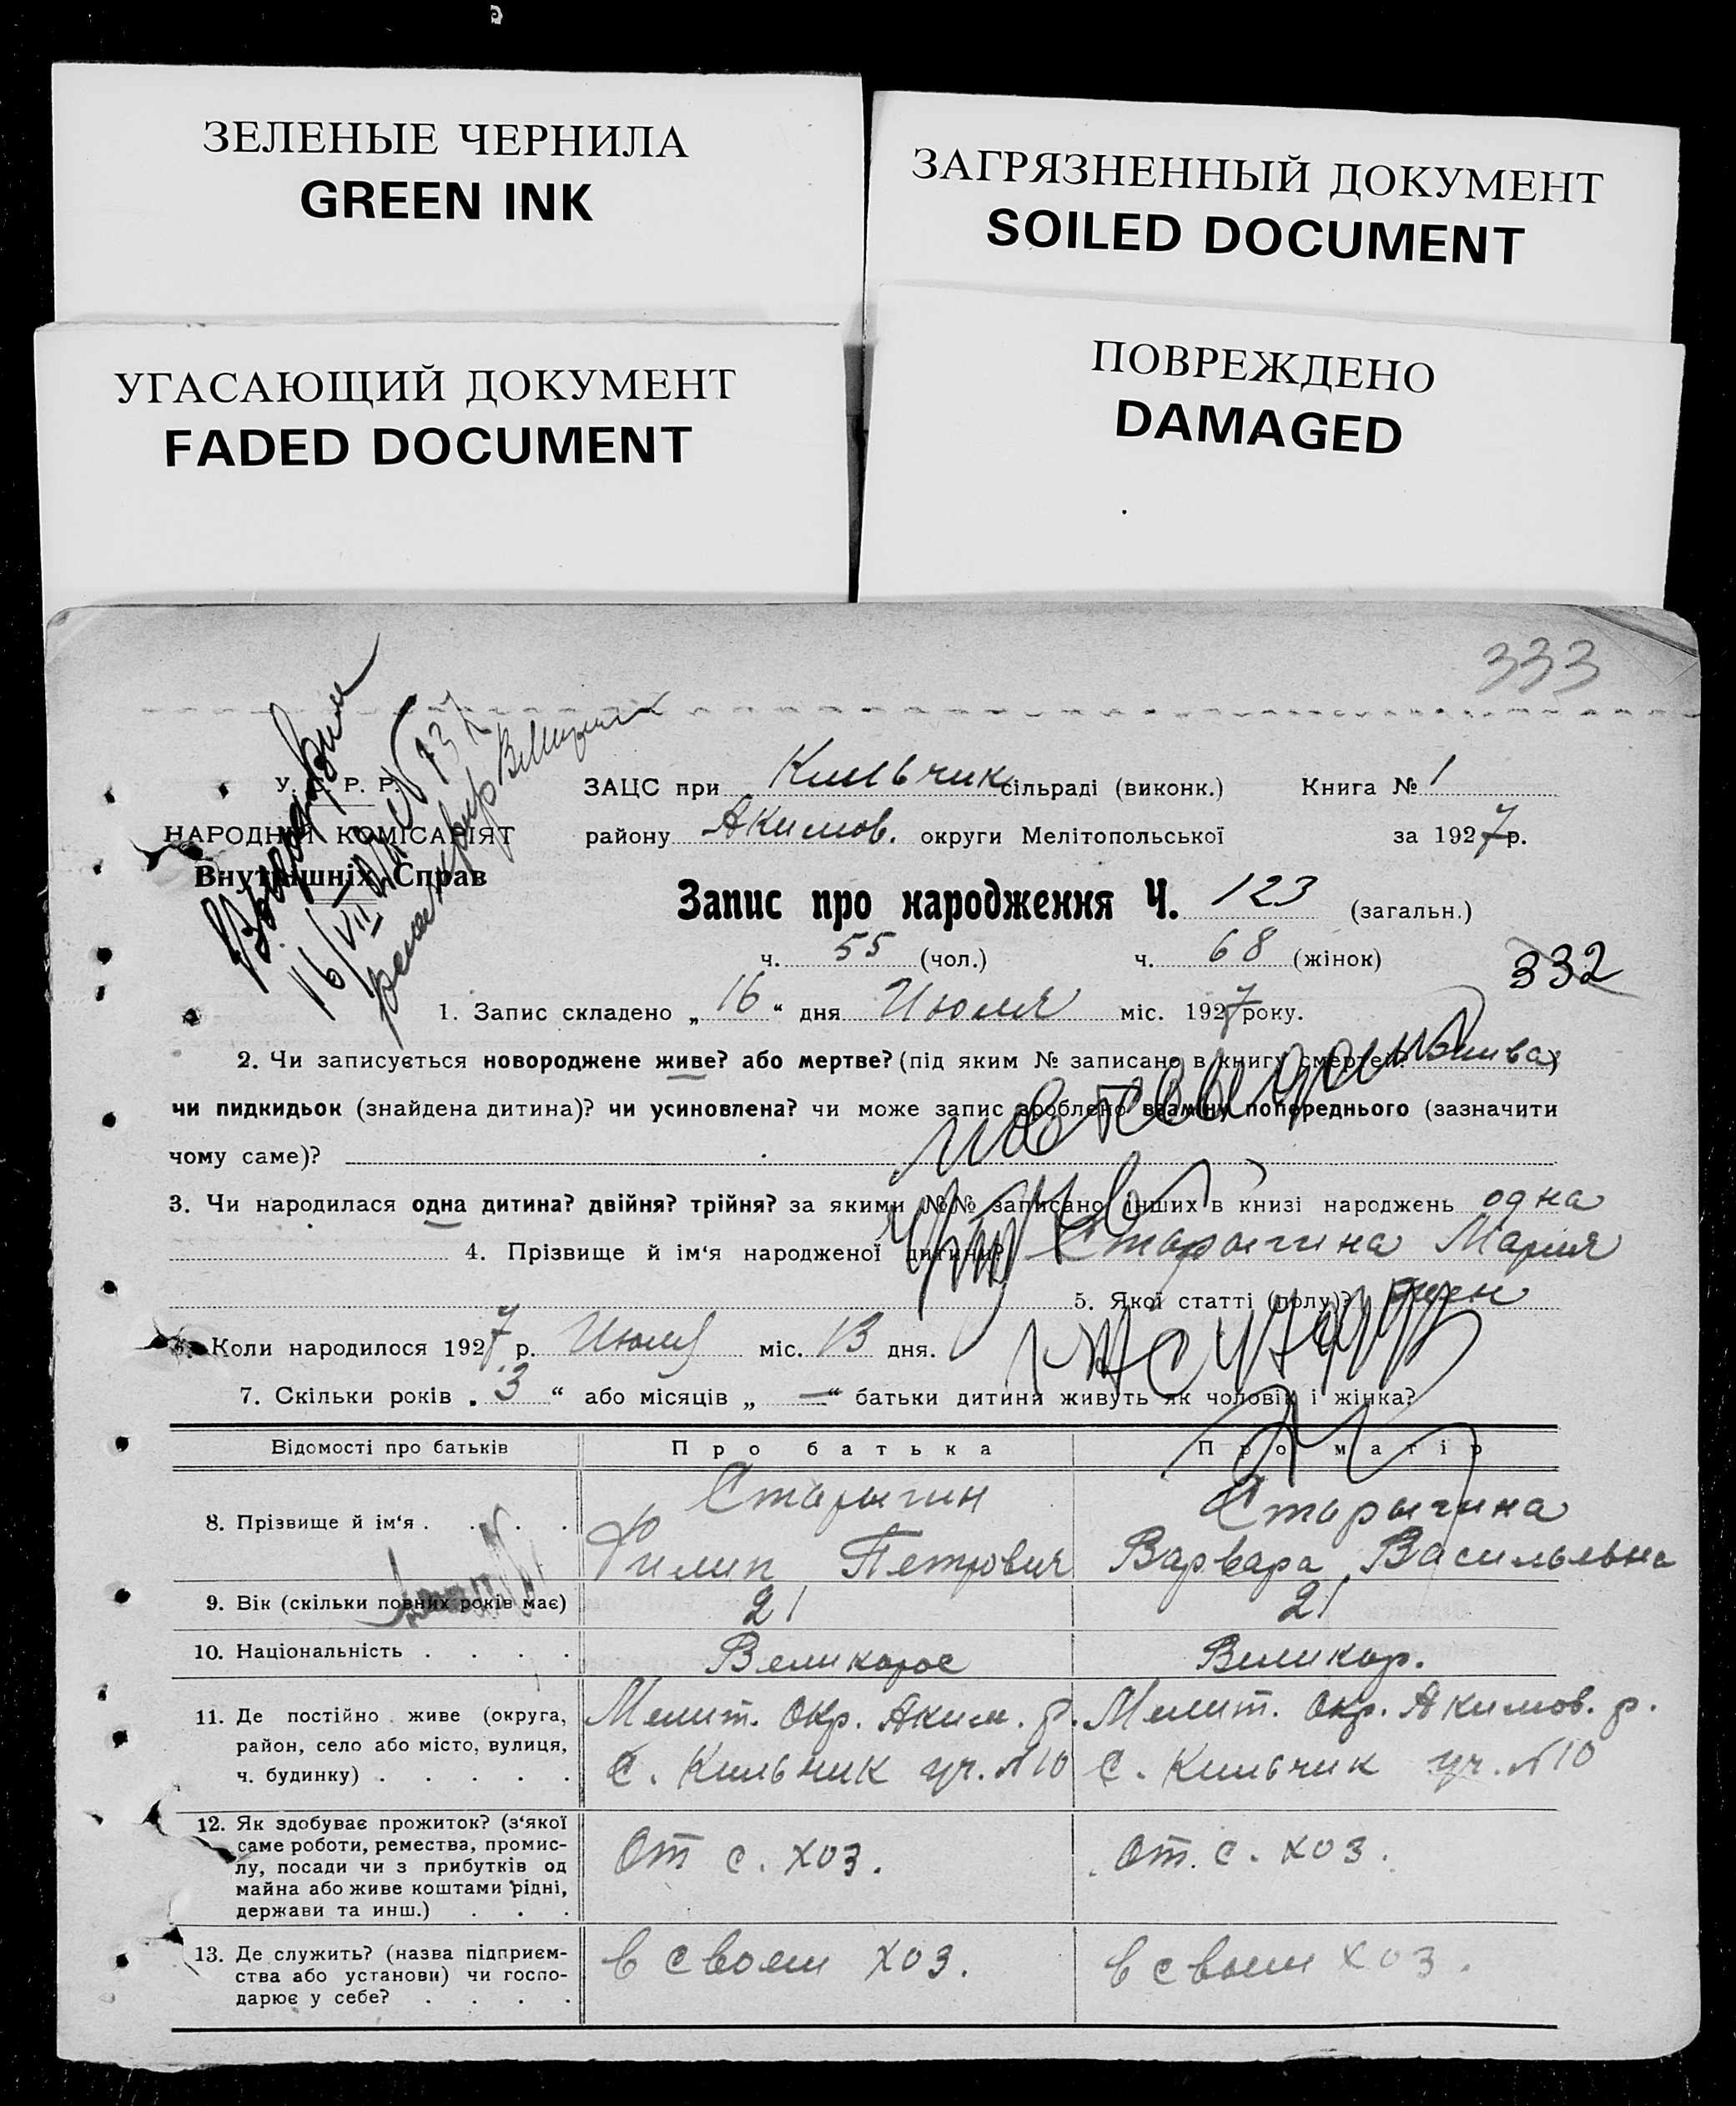 ЗЕЛЕНЫЕ ЧЕРНИЛА
GREEN INK
ЗАГРЯЗНЕННЫЙ ДОКУМЕНТ
SOILED DOCUMENT
УГАСАЮЩИЙ ДОКУМЕНТ
FADED DOCUMENT
ПОВРЕЖДЕНО
DAMAGED
333
У. С. Р. Р.
НАРОДНІЙ КОМІСАРІЯТ
Внутрішніх Справ
16/VII
ЗАЦС при Кильчик сільраді (виконк.) Книга № 1
району Акимов. округи Мелітопольської за 1927 р.
Запис про народження Ч. 123 (загальн.)
ч. 55 (чол.) ч. 68 (жінок)
332
1. Запис складено „ 16 “ дня Июля міс. 1927 року.
2. Чи записується новороджене живе? або мертве? (під яким № записано в книгу смертей?
чи пидкидьок (знайдена дитина)? чи усиновлена? чи може запис зроблено взаміну попереднього (зазначити
чому саме)?
3. Чи народилася одна дитина? двійня? трійня? за якими №№ записано інших в книзі народжень одна
4. Прізвище й ім'я народженої дитини? Старыгина Мария
5. Якої статті (полу)? жен
6. Коли народилося 1927 р. Июля міс. 13 дня.
7. Скільки років „ 3 “ або місяців „ — “ батьки дитини живуть як чоловік і жінка?
Відомості про батьків Про батька Про матір
8. Прізвище й ім'я . . . . Старыгин Филип Петрович Старыгина Варвара Васильевна
9. Вік (скільки повних років має) 21 21
10. Національність . . . . Великорос Великор.
11. Де постійно живе (округа, Мелит. Окр. Аким. р. Мелит. Окр. Акимов. р.
район, село або місто, вулиця,
ч. будинку) . . . . . с. Кильчик уч. №10 с. Кильчик уч. №10
12. Як здобуває прожиток? (з'якої
саме роботи, ремества, промис-
лу, посади чи з прибутків од От с. хоз. От. с. хоз.
майна або живе коштами рідні,
держави та инш.) . . .
13. Де служить? (назва підприєм- в своем хоз. в своем хоз.
ства або установи) чи госпо-
дарює у себе? . . . .